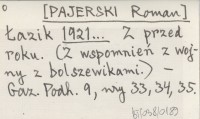 [PAJERSKI Roman]
Łazik 1921... Z przed
roku. (Z wspomnień z woj-
ny z bolszewikami.) –
Gaz. Podh. 9, nry 33, 34, 35.